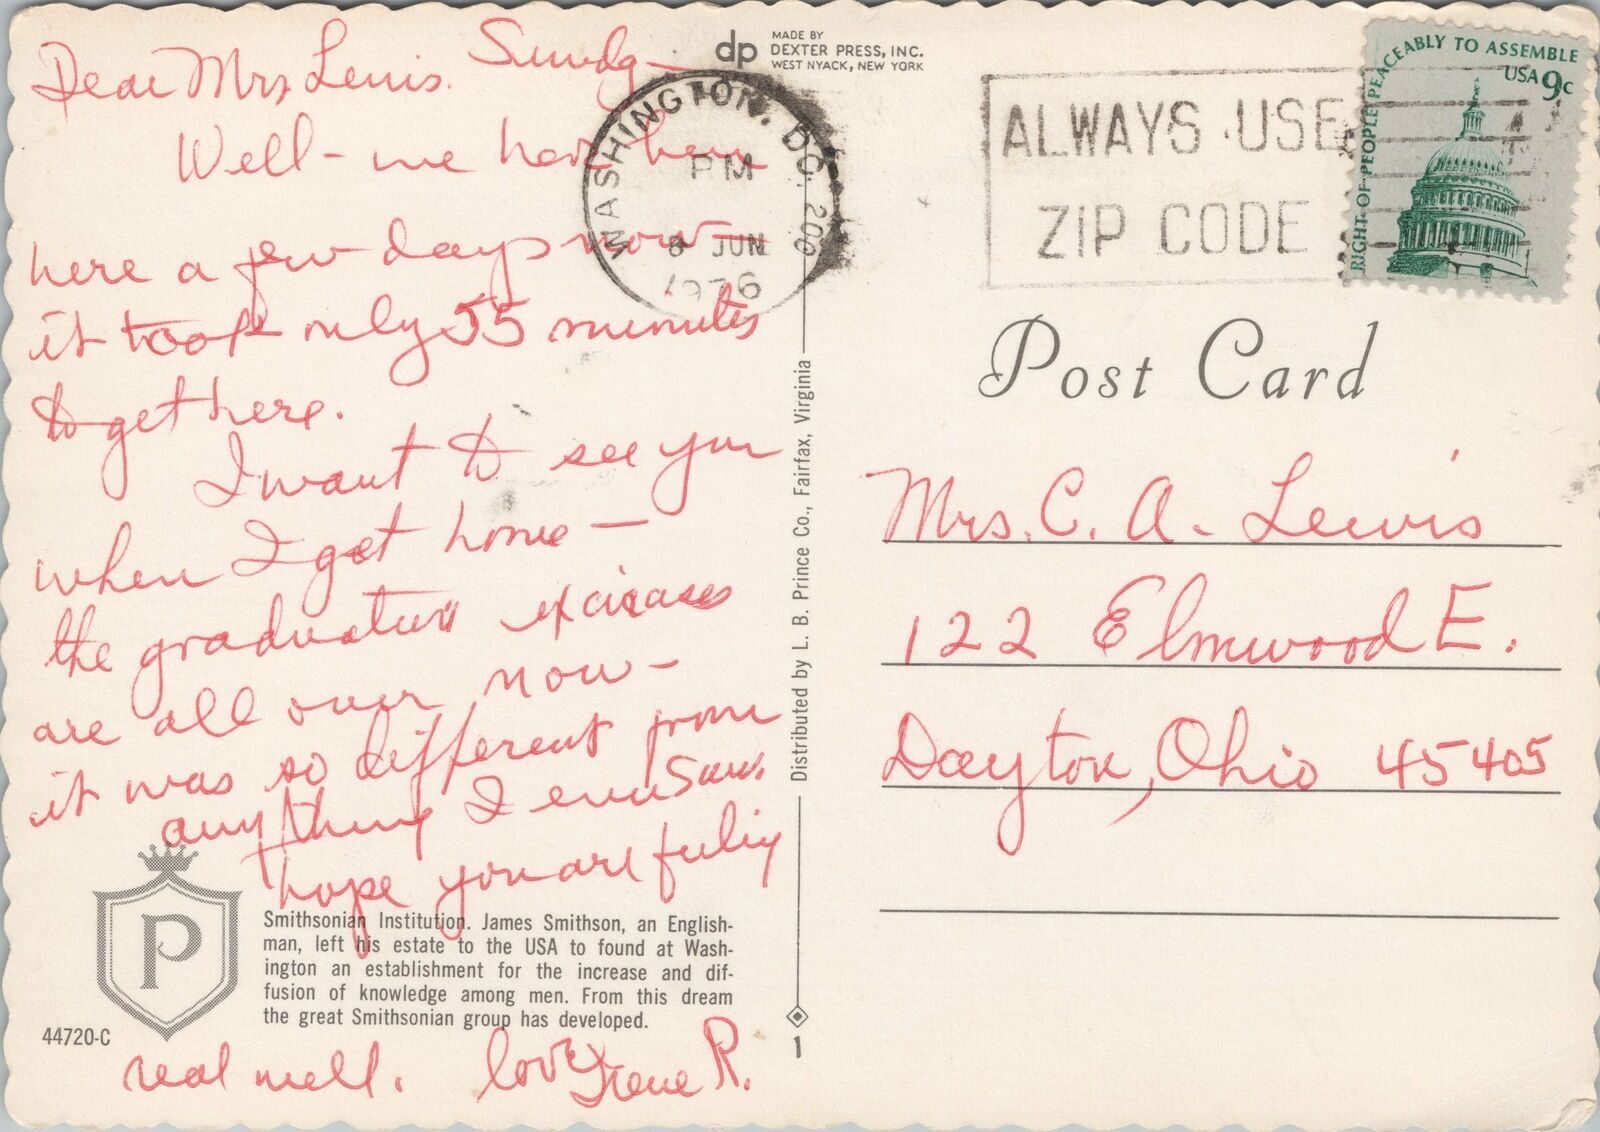 Dear Mrs Lewis. Sunday—
Well - we have been
here a few days now—
it took only 55 minutes
to get here.
I want to see you
when I get home —
the graduation excirases
are all over now -
it was so different from
anything I ever saw.
hope you are feeling
real well. love Irene R.
dp MADE BY
DEXTER PRESS, INC.
WEST NYACK, NEW YORK
Smithsonian Institution. James Smithson, an English-
man, left his estate to the USA to found at Wash-
ington an establishment for the increase and dif-
fusion of knowledge among men. From this dream
the great Smithsonian group has developed.
P
44720-C
Distributed by L. B. Prince Co., Fairfax, Virginia
1
WASHINGTON, DC. 200
PM
8 JUN
1976
ALWAYS USE
ZIP CODE
RIGHT OF PEOPLE PEACEABLY TO ASSEMBLE
USA 9c
Post Card
Mrs. C. A. Lewis
122 Elmwood E.
Dayton, Ohio 45405